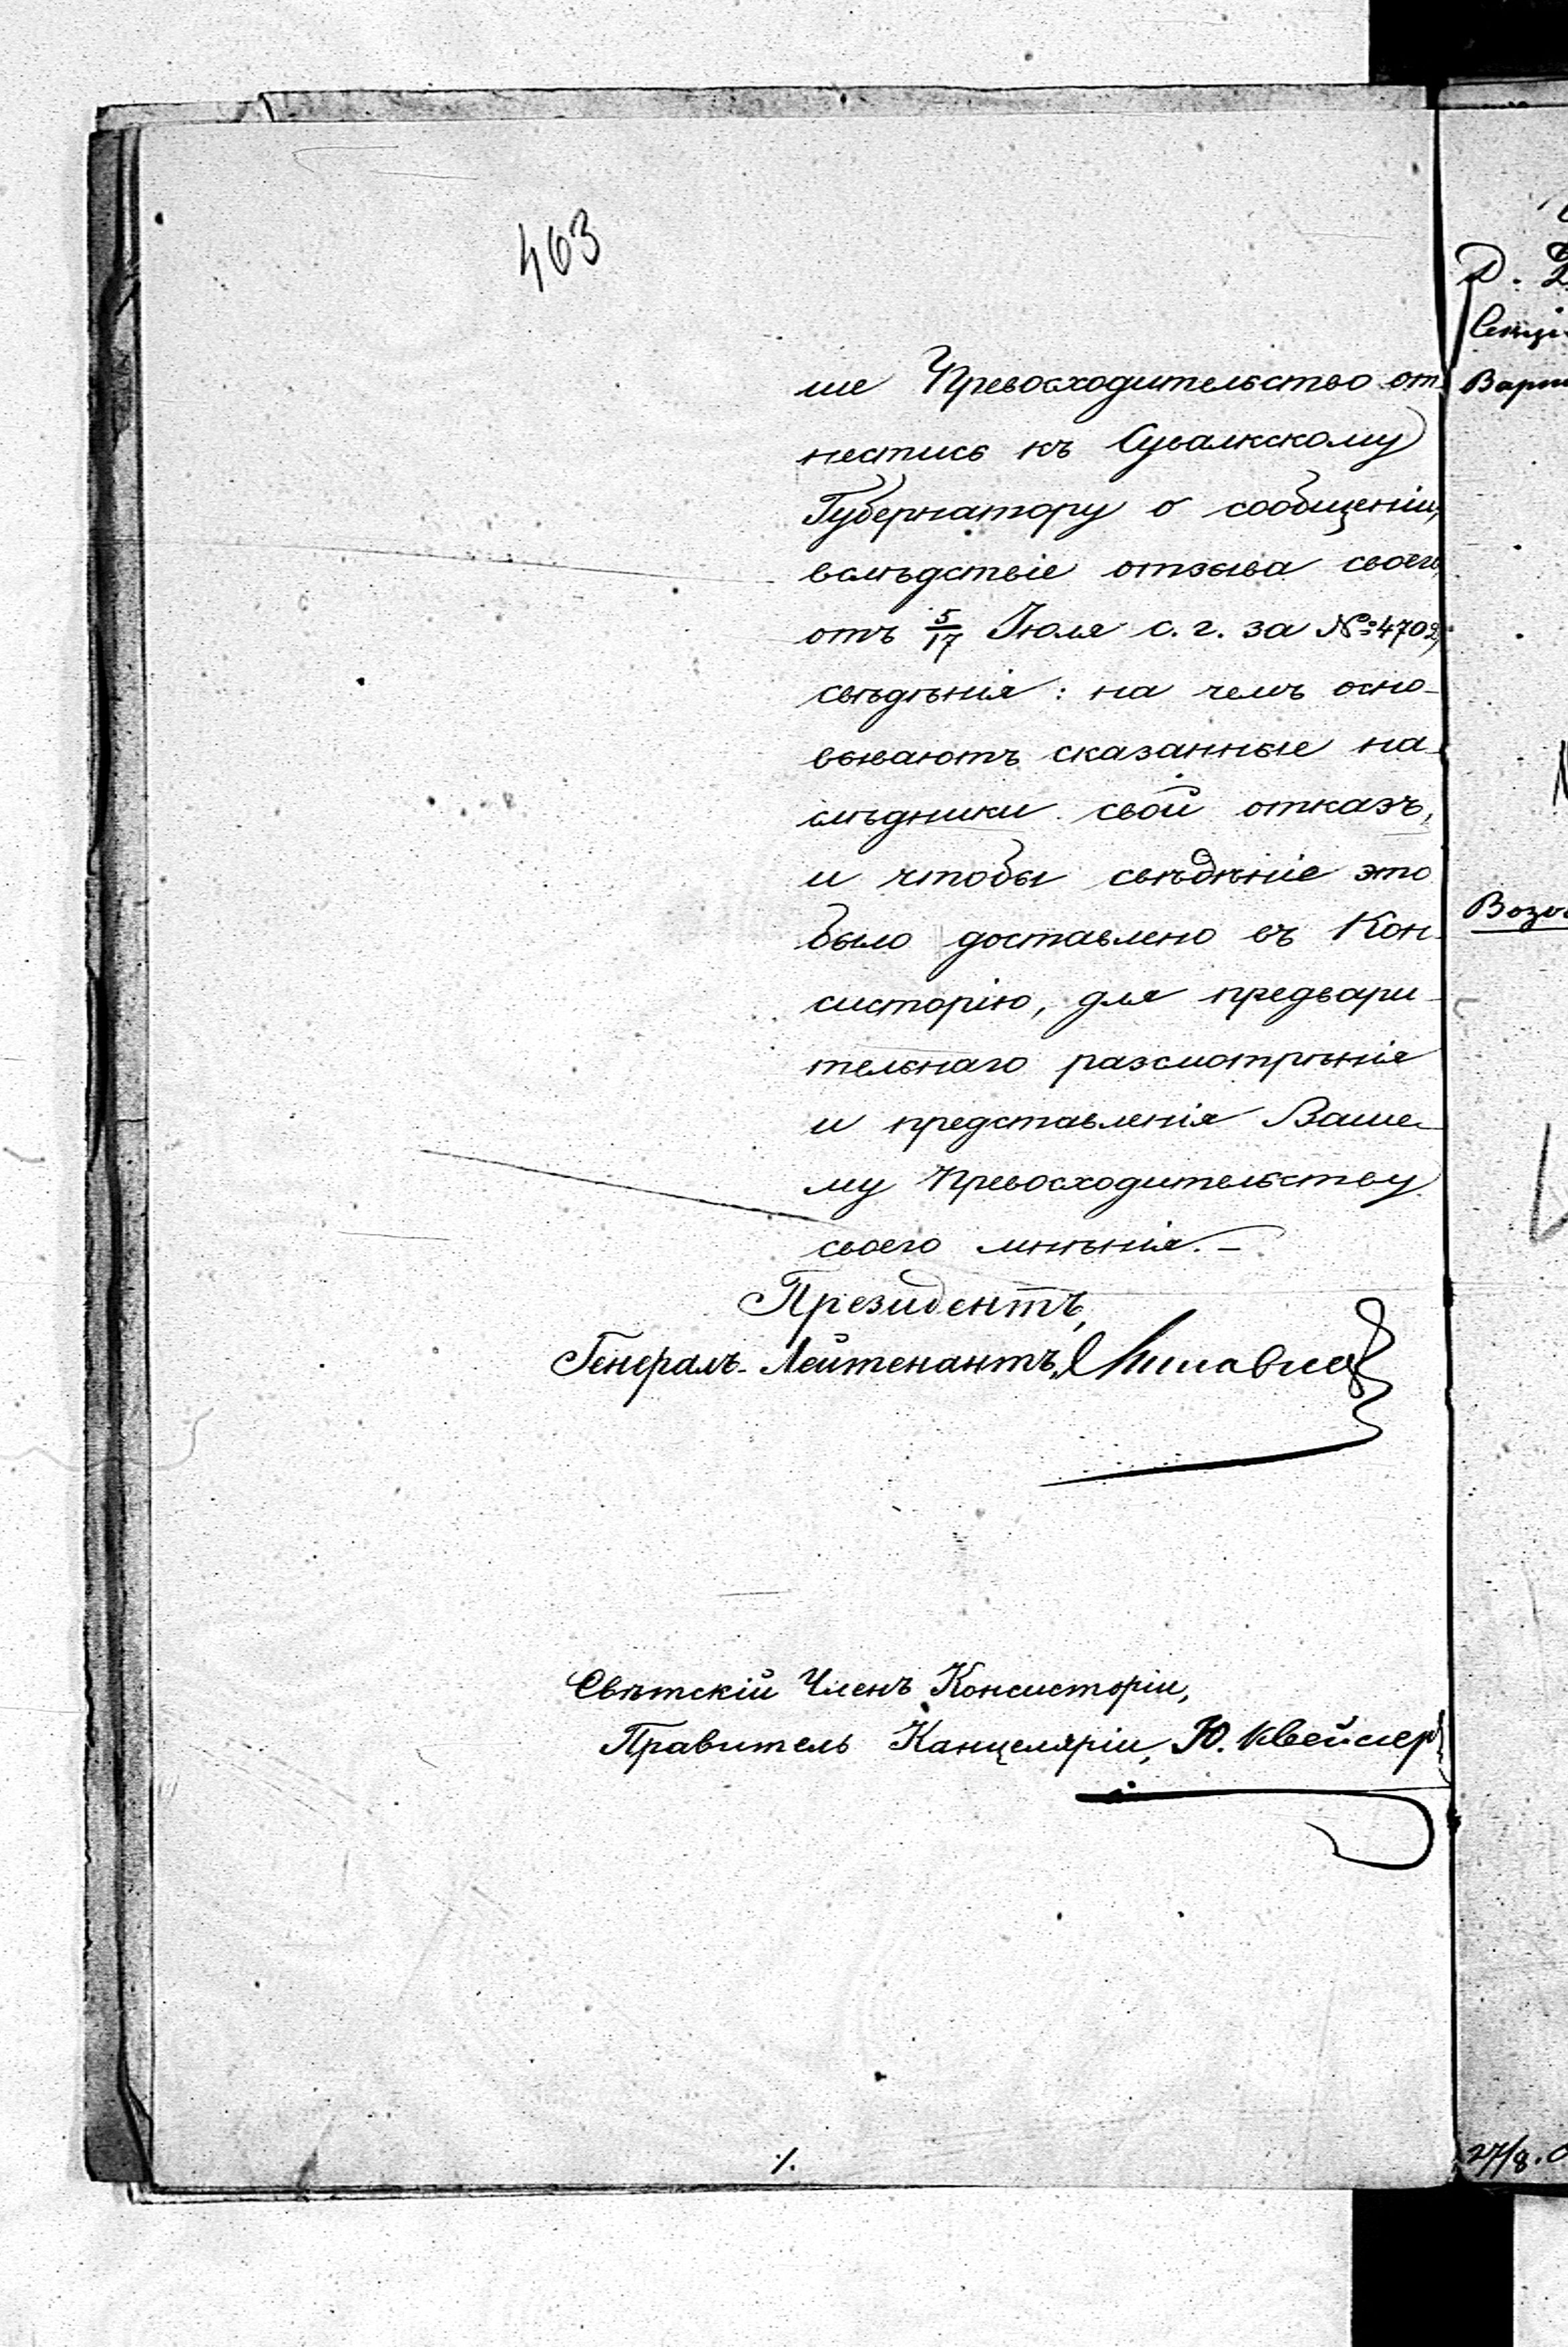 463
ше Превосходительство от-
нестись къ Сувалкскому
Губернатору о сообщеніи,
вслѣдствіе отзыва своего
отъ 5/17 Іюля с. г. за №: 4702,
свѣдѣнія: на чемъ осно-
вываютъ сказанные на-
слѣдники свой отказъ,
и чтобы свѣдѣніе это
было доставлено въ Кон-
систорію, для предвари-
тельнаго разсмотрѣнія
и представленія Ваше-
му Превосходительству
своего мнѣнія. –
Президентъ,
Генералъ-Лейтенантъ,
Свѣтскій Членъ Консисторіи,
Правитель Канцеляріи, Ю.
27/8.